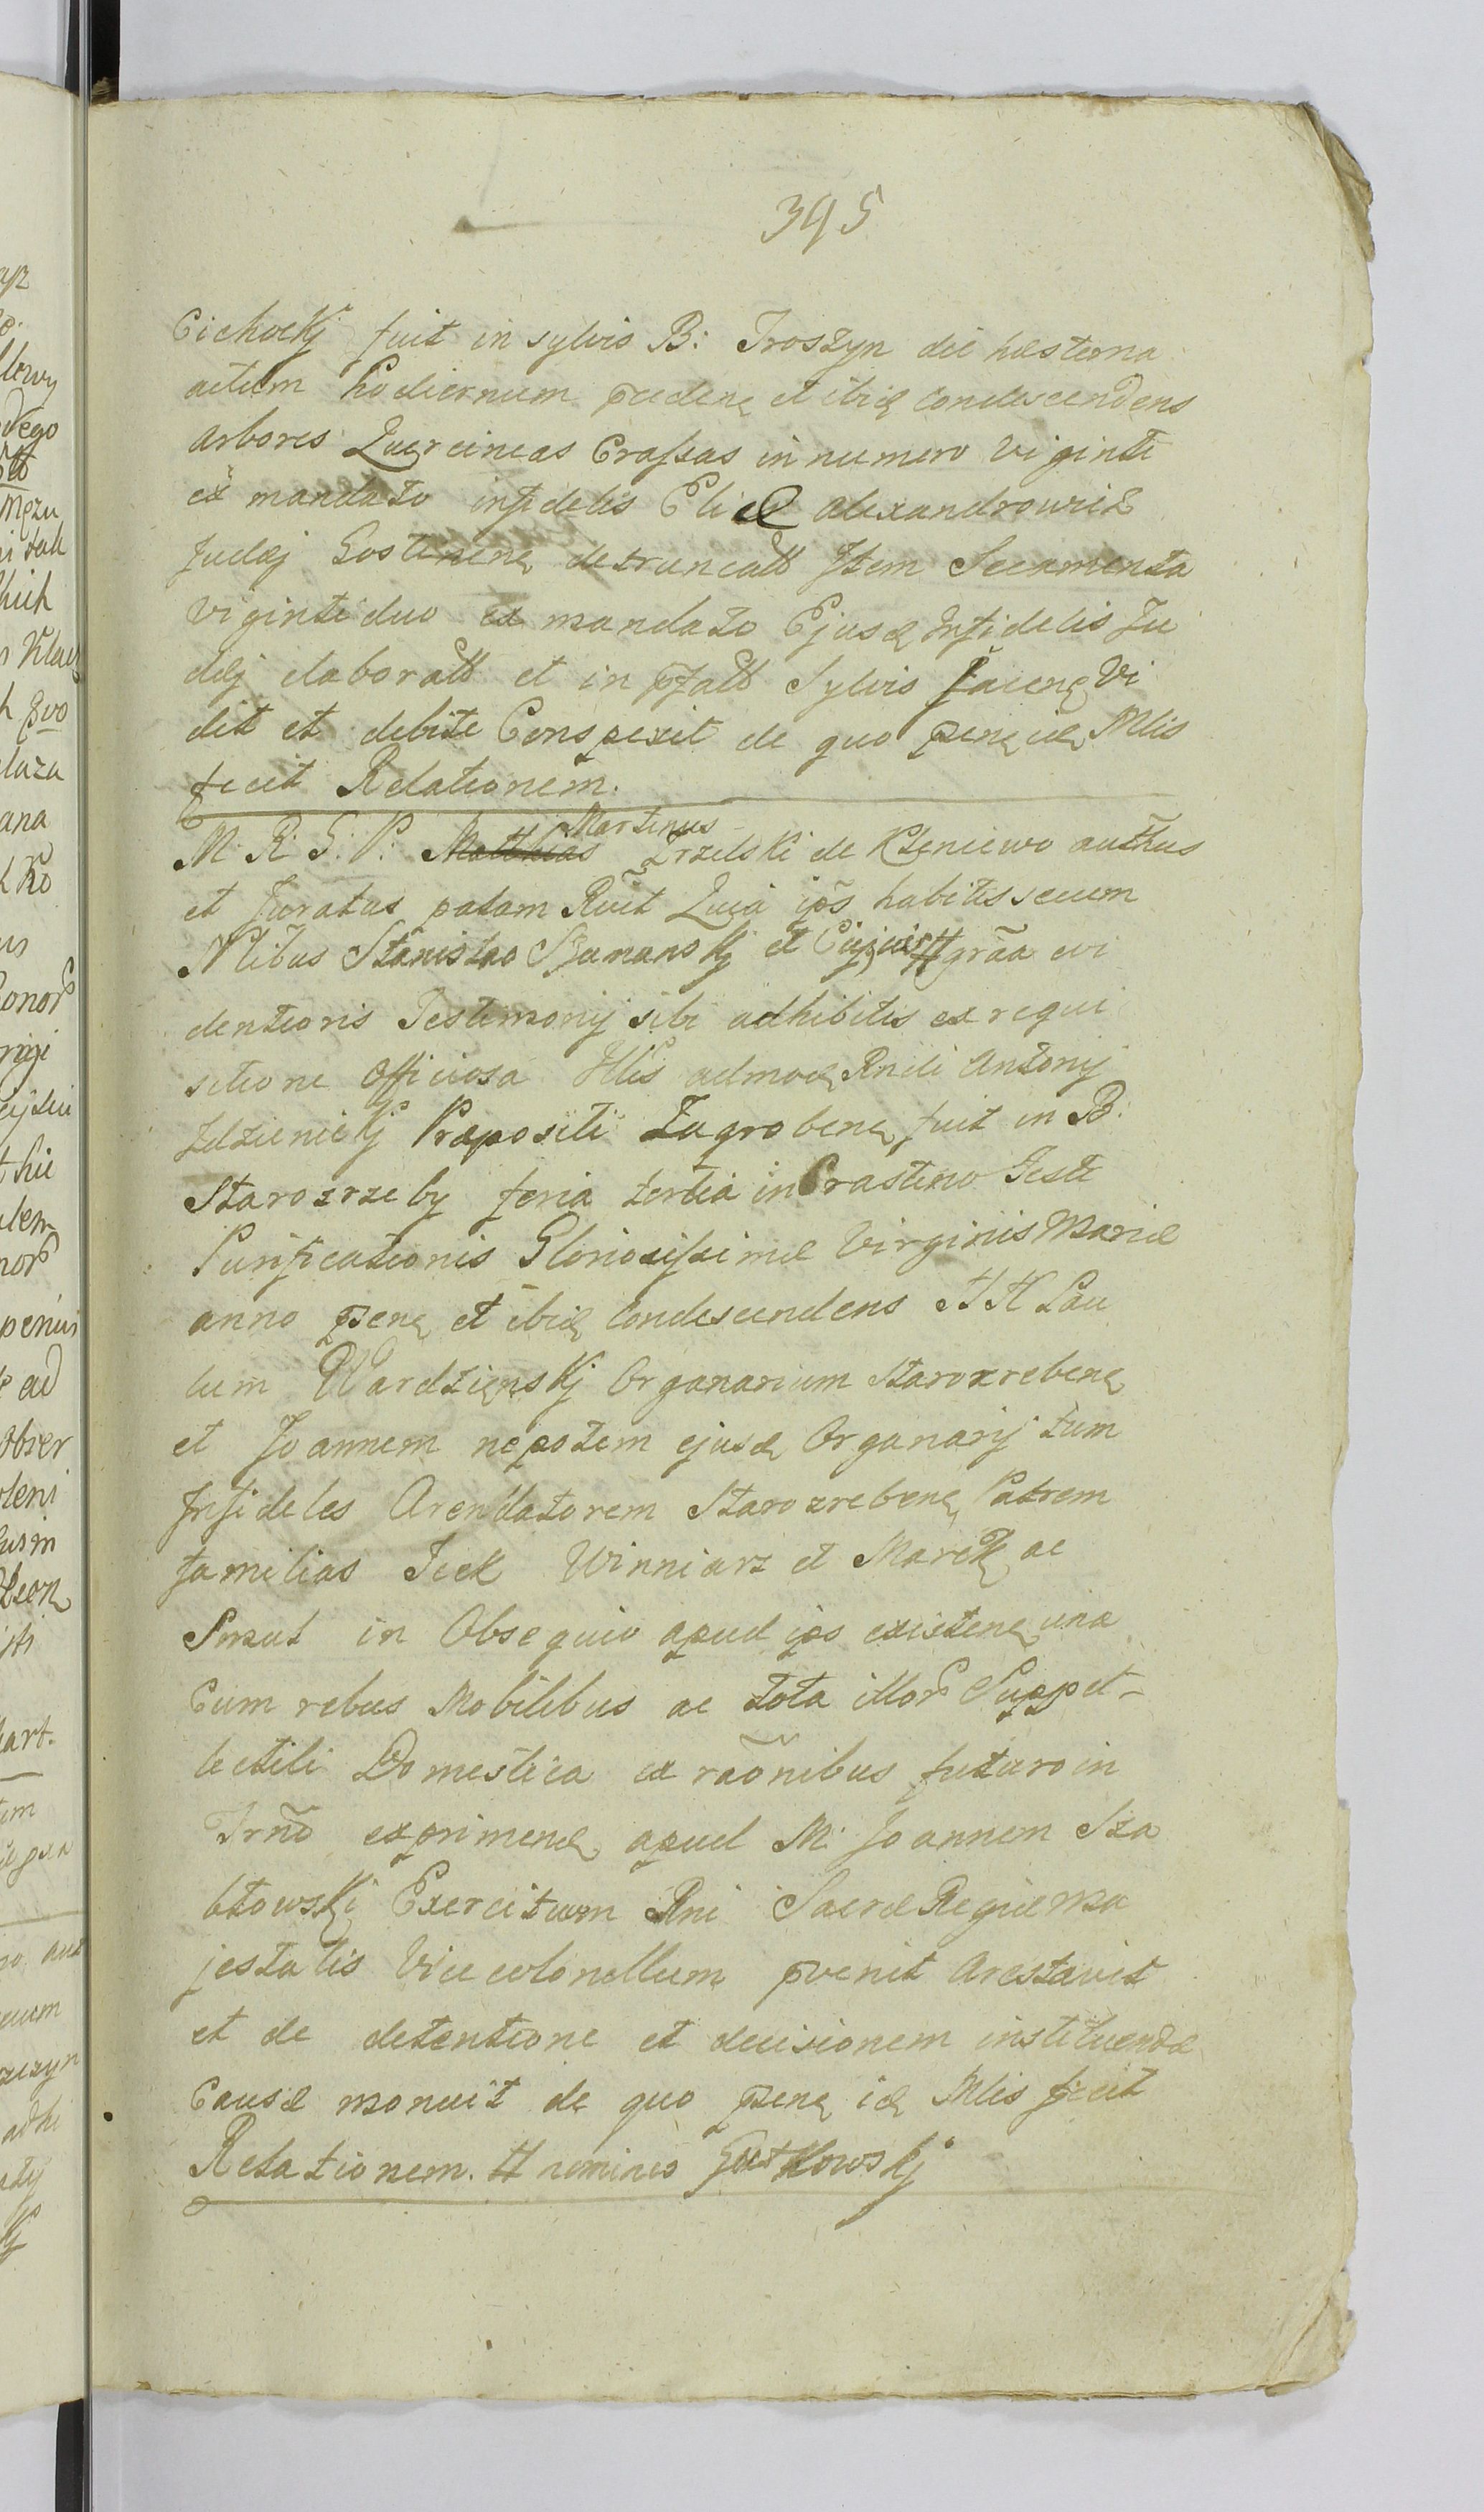 395
Cichockij fuit in sylvis B: Troszyn die hesterna
actum hodiernum preden et ibid condescendens
arbores Quercineas Crassas in numero viginti
ex mandato infidelis Eliæ alexandrowicz
Judæj Gostinen detruncatt Item Secamenta
viginti duo ex mandato Ejusd Infidelis Ju
dæj elaboratt et in pfatt Sylvis jacen Vi
dit et debite Conspexit de quo psens id Mlis
fecit Relationem.
M: R: G: P: Martinus Zrzelski de Kzeniewo authus
et Juratus palam Rcuit Quia ips habitis secum
Nlibus Stanislao Szumanskij et grãa evi
dentioris Testimonij sibi adhibitis ex requi
sitione Officiosa Illis admod Rndi Antonij
Zdzienickij Præpositi Zagroben, fuit in B:
Starozrzeby feria tertia in Crastino Festi
Purificationis Gloriosissimæ Virginis Mariæ
anno psen et ibid Condescendens HH Pau
lum Wardzienskij Organarium Starozreben
et Joannem nepotem ejusd Organarij tum
Infideles Arendatorem Starozreben Patrem
familias Icek Winniarz et Marek ac
Smut in Obsequio apud ips existen una
Cum rebus Mobilibus ac tota illor Suppel-
lectili Domestica ex raõnibus futuro in
Trno exprimend apud M: Joannem Sza
blowskj Exercituum Rni Sacræ Regiæ Ma
jestatis Vice colonellum pvenit Arestavit
et de detentione et decisionem instituendæ
Causæ monuit de quo psen id Mlis fecit
Relationem. H nominis Gutkowskij